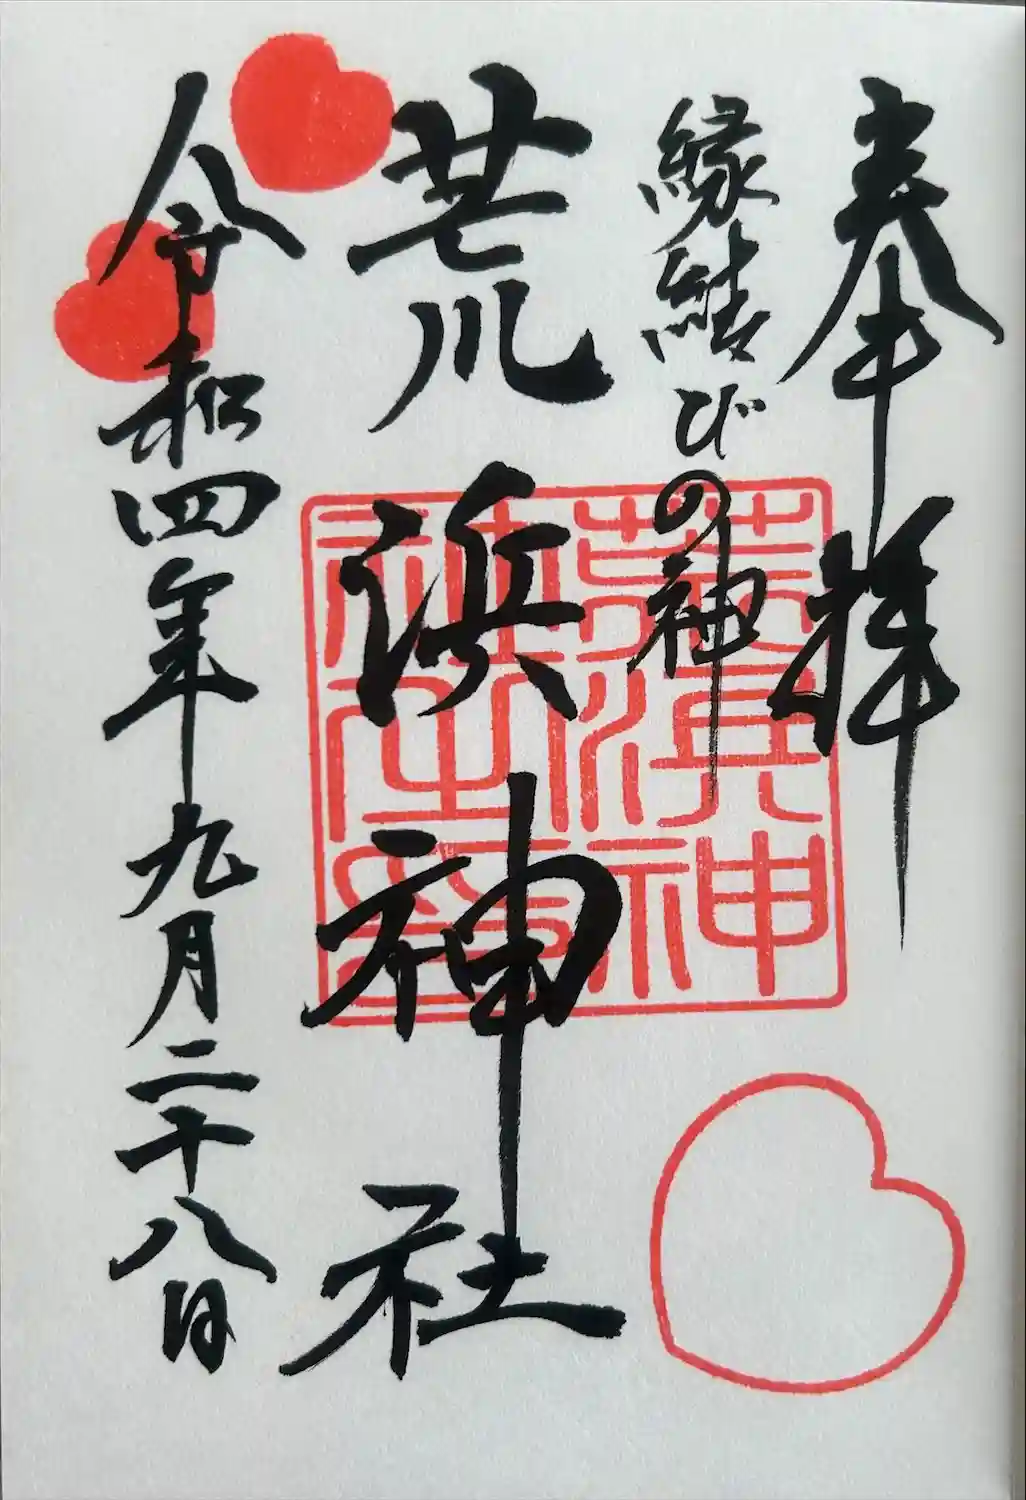 奉拝
縁結びの神
荒浜神社
令和四年九月二十八日
荒濱神